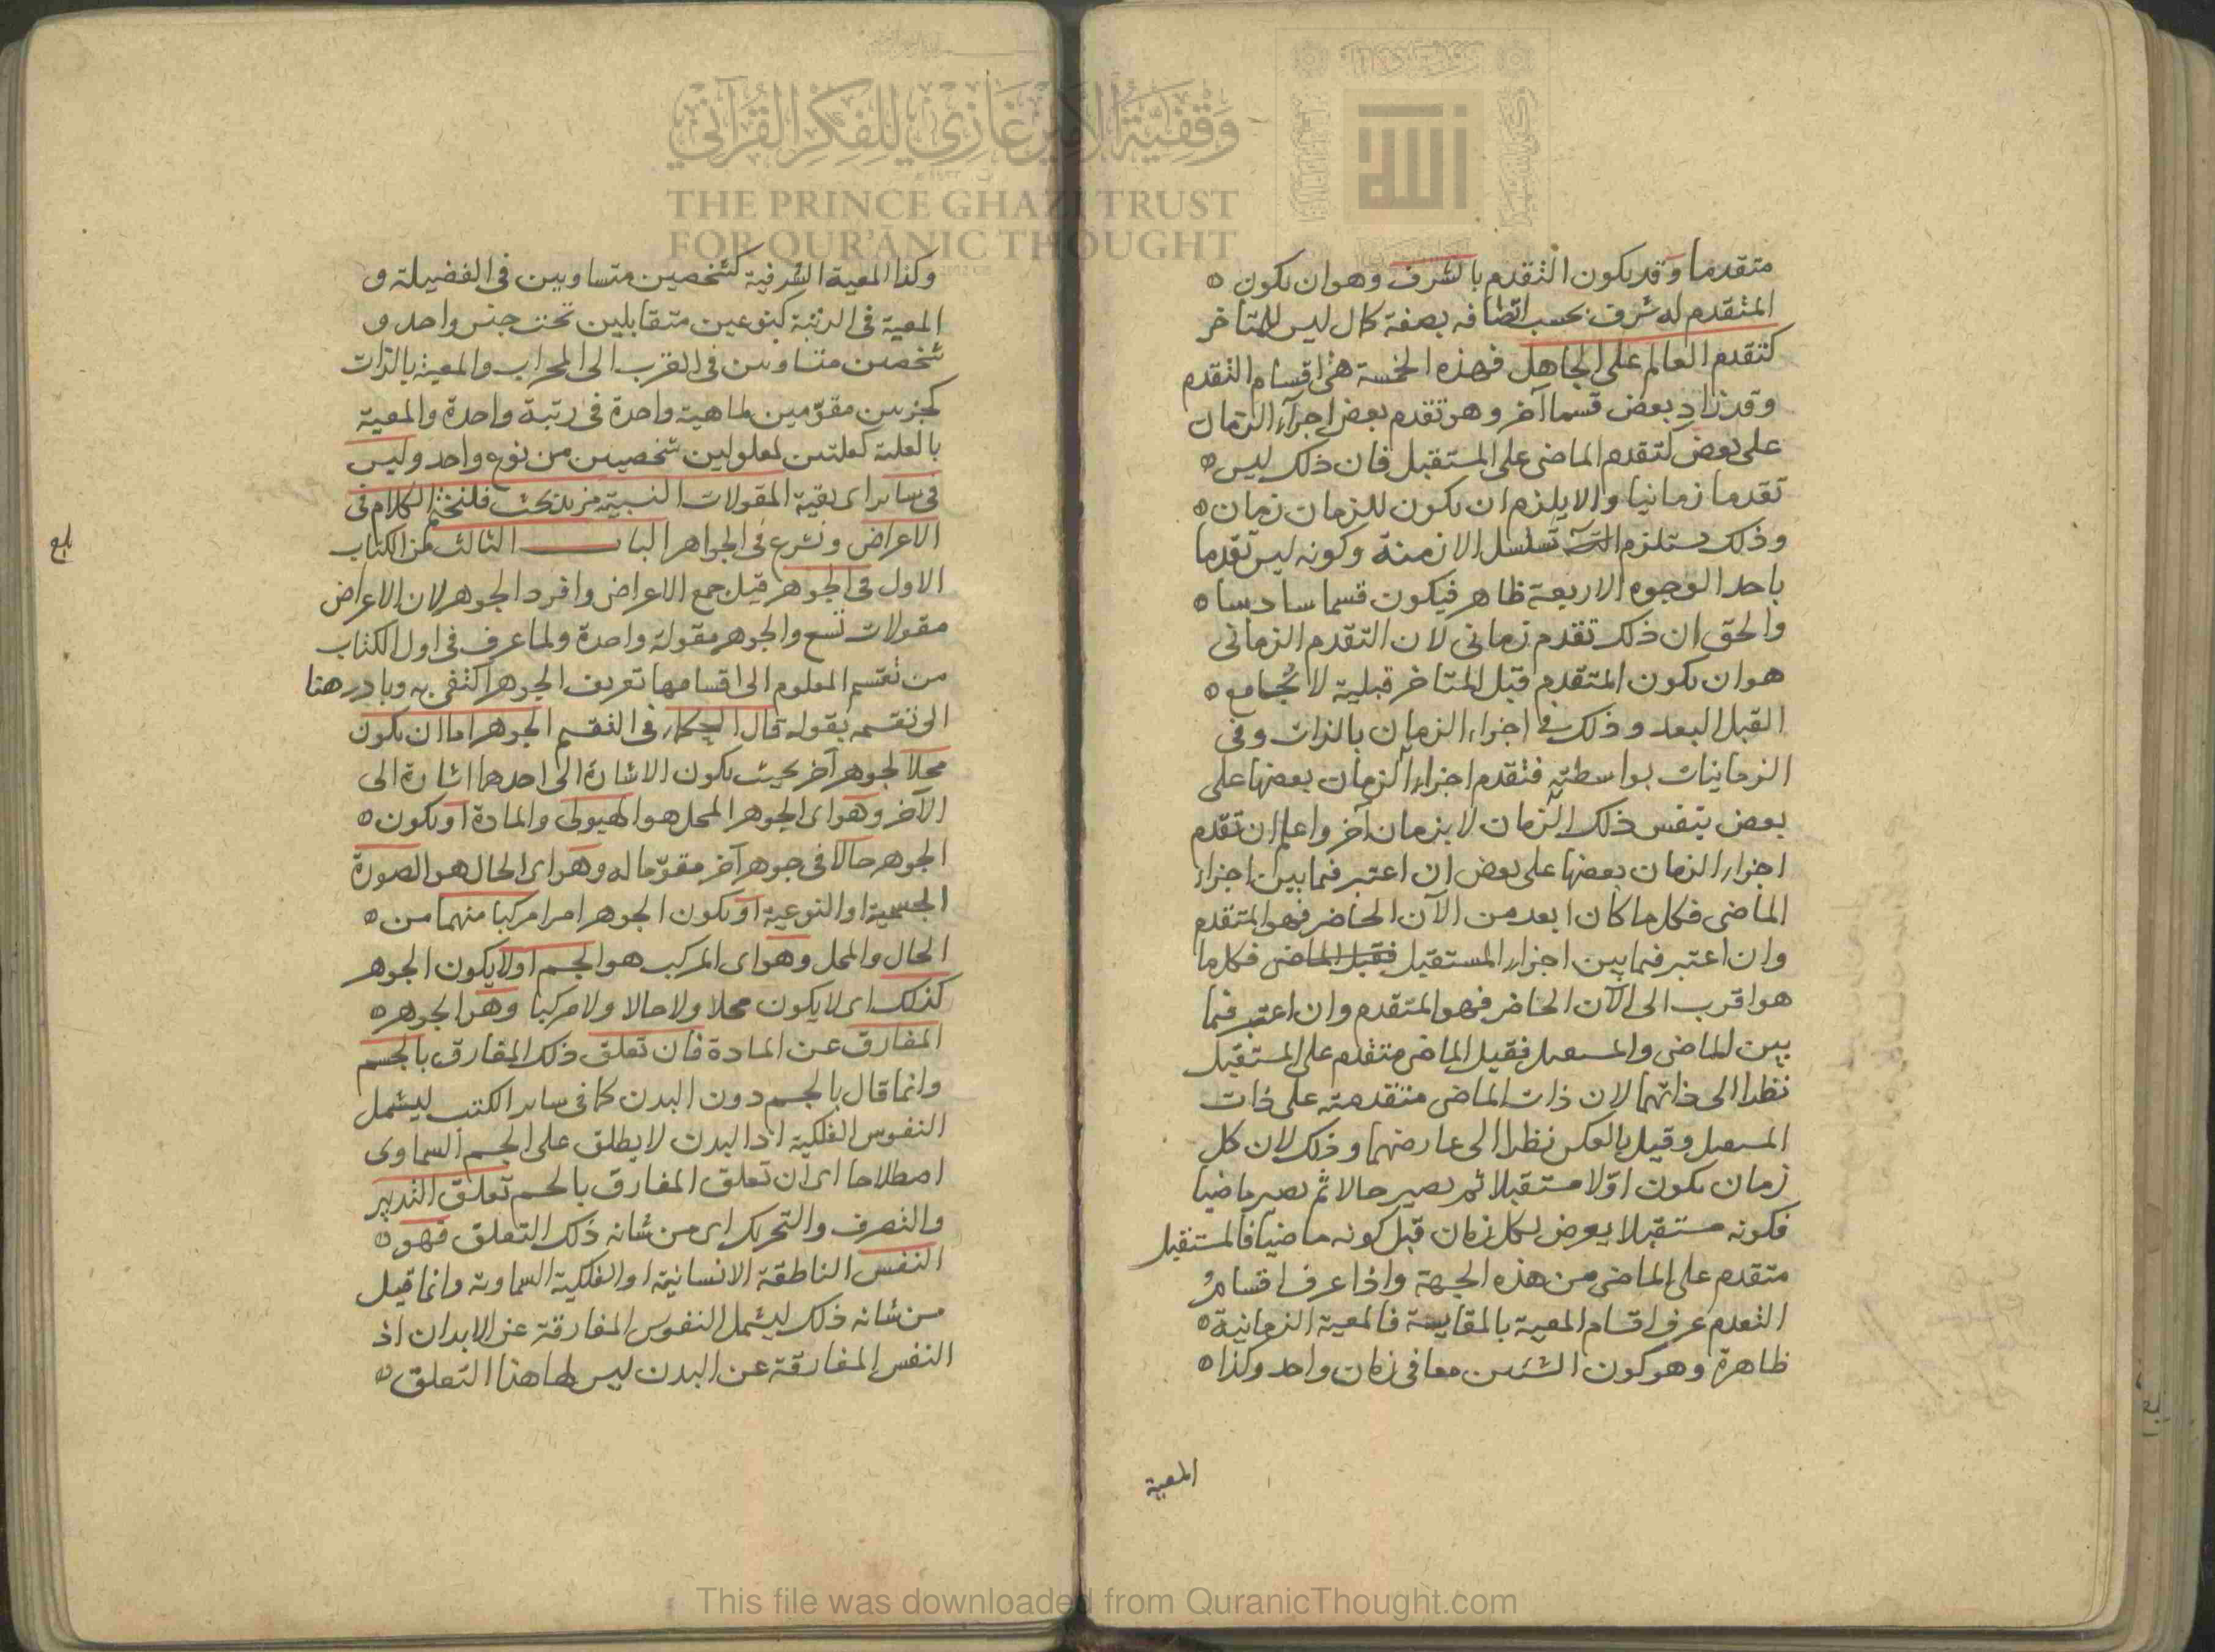 وقفية الأمير غازي للفكر القرآني
THE PRINCE GHAZI TRUST
FOR QUR'ĀNIC THOUGHT
الله
متقدما وقد يكون التقدم بالشرف وهو ان يكون
المتقدم له شرف بحسب اتصافه بصفة كمال ليس للمتاخر
كتقدم العالم على الجاهل فهذه الخمسة هى اقسام التقدم
وقد زاد بعض قسما آخر وهو تقدم بعض اجزآء الزمان
على بعض كتقدم الماضى على المستقبل فان ذلك ليس
تقدما زمانيا والا يلزم ان يكون للزمان زمان
وذلك يستلزم تسلسل الازمنة وكونه ليس تقدما
باحد الوجوه الاربعة ظاهر فيكون قسما سادسا
والحق ان ذلك تقدم زمانى لان التقدم الزمانى
هو ان يكون المتقدم قبل المتاخر قبلية لا يُجامع
القبل البعد وذلك فى اجزاء الزمان بالذات وفى
الزمانيات بواسطته فتقدم اجزاء الزمان بعضها على
بعض بنفس ذلك الزمان لا بزمان آخر واعلم ان تقدم
اجزاء الزمان بعضها على بعض ان اعتبر فيما بين اجزاء
الماضى فكل ما كان ابعد من الآن الحاضر فهو المتقدم
وان اعتبر فيما بين اجزاء المستقبل فقيل الماضى فكل ما
هو اقرب الى الآن الحاضر فهو المتقدم وان اعتبر فيما
بين الماضى والمستقبل فقيل الماضى متقدم على المستقبل
نظرا الى ذاتهما لان ذات الماضى متقدمة على ذات
المستقبل وقيل بالعكس نظرا الى عارضهما وذلك لان كل
زمان يكون اوّلا مستقبلا ثم يصير حالا ثم يصير ماضيا
فكونه مستقبلا يعرض لكل زمان قبل كونه ماضيا فالمستقبل
متقدم على الماضى من هذه الجهة واذا عرف اقسام
التقدم عرف اقسام المعية بالمقايسة فالمعية الزمانية
ظاهرة وهو كون الشيئين معا فى زمان واحد وكذا
المعية
وكذا المعية الشرفية كشخصين متساويين فى الفضيلة و
المعية فى الرتبة كنوعين متقابلين تحت جنس واحد و
شخصين متساويين فى القرب الى المحراب والمعية بالذات
كجزئين مقوّمين لماهية واحدة فى رتبة واحدة والمعية
بالعلية كعلتين لمعلولين شخصيين من نوع واحد وليس
فى ساير اى بقية المقولات النسبية مزيد بحث فلنختم الكلام فى
الاعراض ونشرع فى الجواهر الباب الثالث من الكتاب
الاول فى الجوهر قيل جمع الاعراض وافرد الجوهر لان الاعراض
مقولات تسع والجوهر مقولة واحدة ولما عرف فى اول الكتاب
من تقسيم المعلوم الى اقسامها تعريف الجوهر اكتفى به وبادر هنا
الى تقسيمه بقوله قال الحكماء فى التقسيم الجوهر اما ان يكون
محلا لجوهر آخر بحيث يكون الاشارة الى احدهما اشارة الى
الآخر وهو اى الجوهر المحل هو الهيولى والمادة او يكون
الجوهر حالا فى جوهر آخر مقوّما له وهو اى الحال هو الصورة
الجسمية او النوعية او يكون الجوهر امرا مركبا منهما من
الحال والمحل وهو اى المركب هو الجسم او لا يكون الجوهر
كذلك اى لا يكون محلا ولا حالا ولا مركبا وهو الجوهر
المفارق عن المادة فان تعلق ذلك المفارق بالجسم
وانما قال بالجسم دون البدن كما فى ساير الكتب ليشمل
النفوس الفلكية اذ البدن لا يطلق على الجسم السماوى
اصطلاحا اى ان تعلق المفارق بالجسم تعلق التدبير
والتصرف والتحريك اى من شانه ذلك التعلق فهو
النفس الناطقة الانسانية او الفلكية السماوية وانما قيل
من شانه ذلك ليشمل النفوس المفارقة عن الابدان اذ
النفس المفارقة عن البدن ليس لها هذا التعلق
بلغ
This file was downloaded from QuranicThought.com